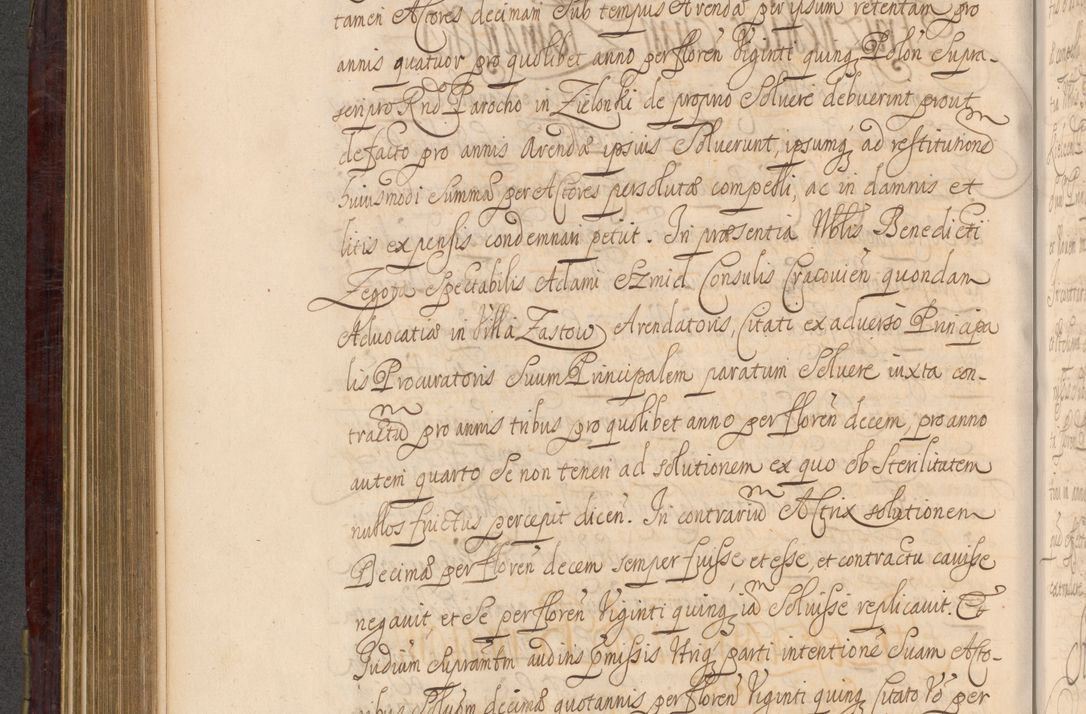 tamen Actores decimam sub tempus Arendæ per ipsum retentam pro
annis quatuor pro quolibet anno per florēn Viginti quinq Polōn supra-
scripto Rnd̄o Parocho in Zielonki de proprio solvere debuerint prout
de facto pro annis Arendæ ipsius solverunt, ipsumq̢ ad restitutionē
huiusmodi summæ per Actores persolutæ compelli, ac in damnis et
litis expensis condemnari petiit. In præsentia Nobilis Benedicti
Zegota Spectabilis Adami Szmid Consulis Cracovieñ quondam
Advocatiæ in Villa Zastow Arendatoris, Citati ex adverso Principa
lis Procuratoris suum Principalem paratum solvere iuxta con-
tractū pro annis tribus pro quolibet anno per florēn decem, pro anno
autem quarto se non teneri ad solutionem ex quo ob sterilitatem
nullos fructus percepit diceñ. In contrariū Actrix solutionem
Decimæ per florēn decem semper fuisse et esse, et contractu cavisse
negavit et se per florēn Viginti quinq̢ iā solvisse replicavit. Et
Iudium supranīm auditis p̄missis Utriq̢ parti intentionē suam Acto-
ribus solvēm decimæ quotannis per florēn Viginti quinq̢ Citato Vō per